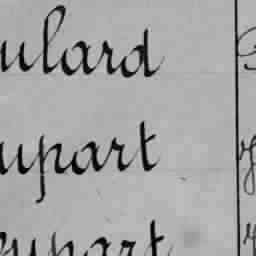 ulard
upart
upart